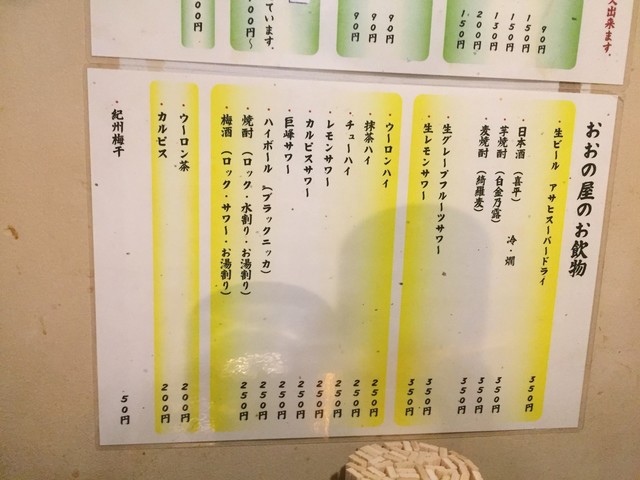 入出来ます。
90円
150円
150円
130円
200円
150円
90円
90円
90円
ています。
00円〜
00円
おおの屋のお飲物
・生ビール アサヒスーパードライ 350円
・日本酒 (喜平) 冷・燗 350円
・芋焼酎 (白金乃露) 350円
・麦焼酎 (綺羅麦) 350円
・生グレープフルーツサワー 350円
・生レモンサワー 350円
・ウーロンハイ 250円
・抹茶ハイ 250円
・チューハイ 250円
・レモンサワー 250円
・カルピスサワー 250円
・巨峰サワー 250円
・ハイボール (ブラックニッカ) 250円
・焼酎 (ロック・水割り・お湯割り) 250円
・梅酒 (ロック・サワー・お湯割り)
・ウーロン茶 200円
・カルピス 200円
・紀州梅干 50円